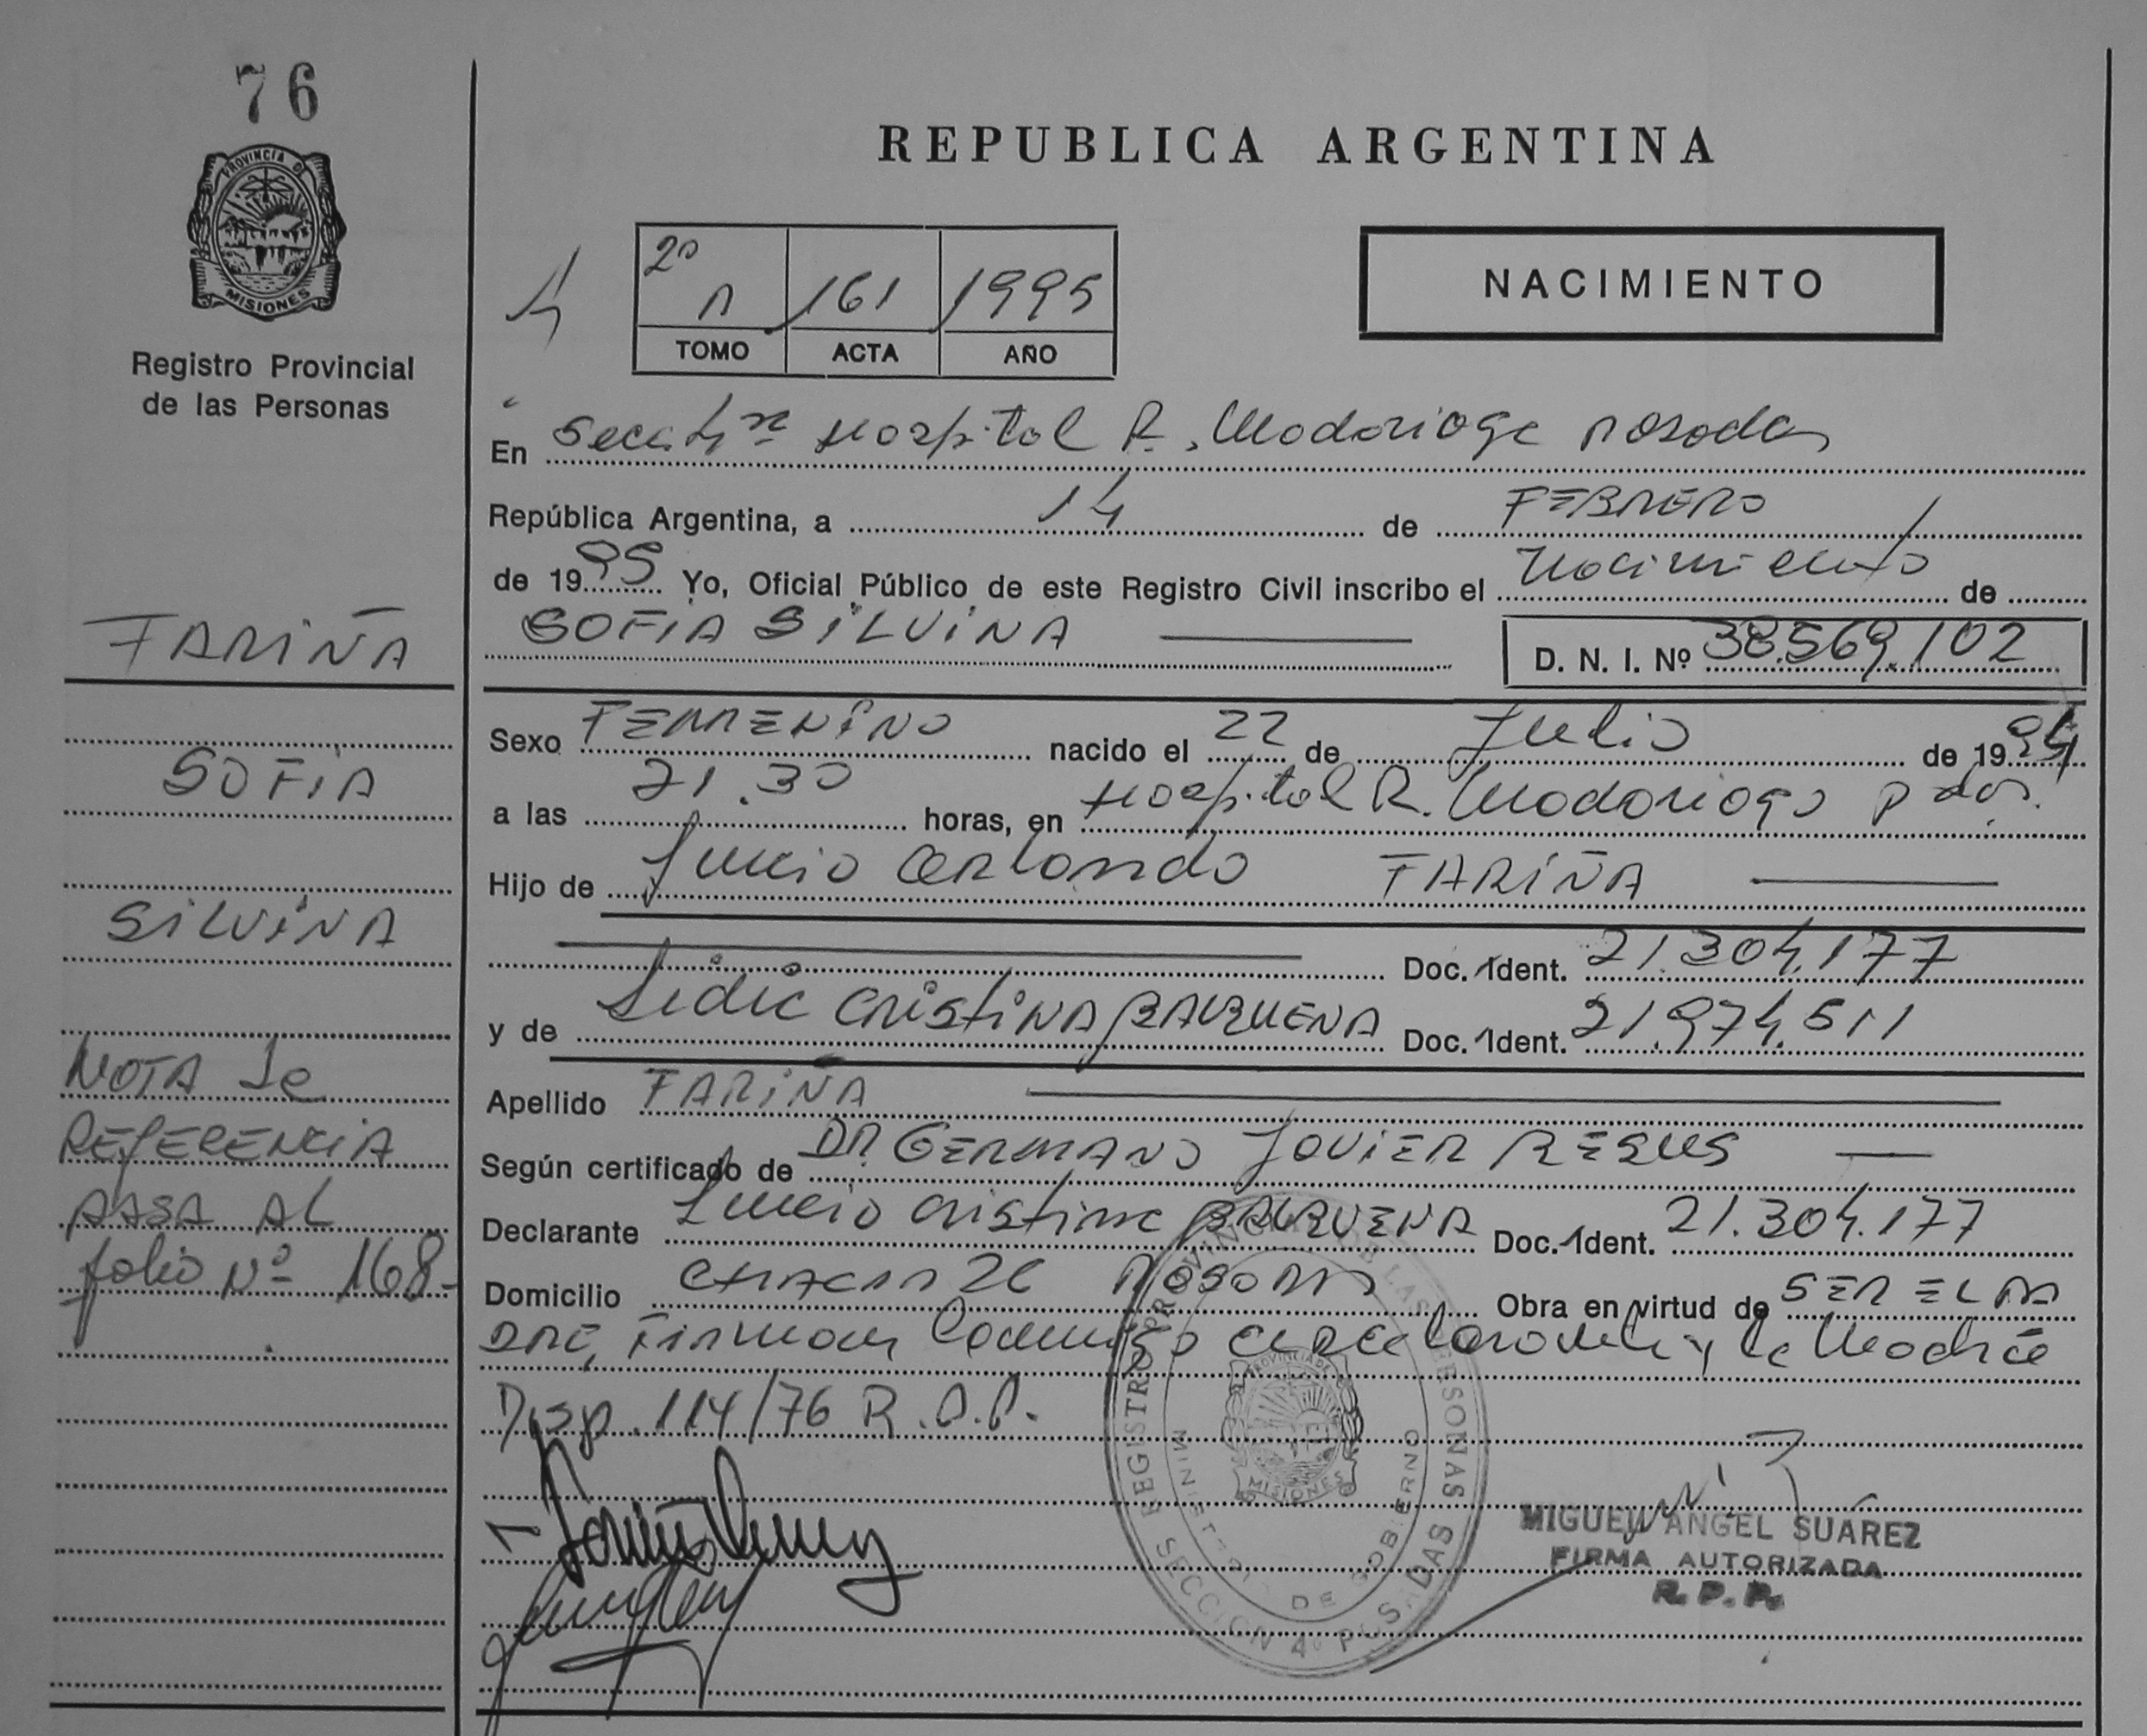 76
PROVINCIA DE
MISIONES
Registro Provincial
de las Personas
FARIÑA
SOFIA
SILVINA
NOTA de
REFERENCIA
PASA AL
folio Nº 168-
REPUBLICA ARGENTINA
4
2º 161 1995
TOMO ACTA AÑO
NACIMIENTO
En Secc. 4ta Hospital R. Madariaga Posadas
República Argentina, a 14 de FEBRERO
de 1995 Yo, Oficial Público de este Registro Civil inscribo el Nacimiento de
SOFIA SILVINA D. N. I. Nº 38.569.102
Sexo FEMENINO nacido el 22 de Julio de 1994
a las 21.30 horas, en Hospital R. Madariaga Pdas.
Hijo de FARIÑA
Doc. Ident. 21.304.177
y de CRISTINA BALBUENA Doc. Ident. 21.974.511
Apellido FARIÑA
Según certificado de DR. GERMANO JAVIER
Declarante Cristina BALBUENA Doc. Ident. 21.304.177
Domicilio Posadas Obra en virtud de SER EL PA
DRE, Firman Conmigo el Declarante y la Madre
Disp. 114/76 R.P.P.
REGISTRO PROVINCIAL DE LAS PERSONAS
MINISTERIO DE GOBIERNO
PROVINCIA DE
MISIONES
SECCION 4º POSADAS
MIGUEL ANGEL SUAREZ
FIRMA AUTORIZADA
R. P. P.